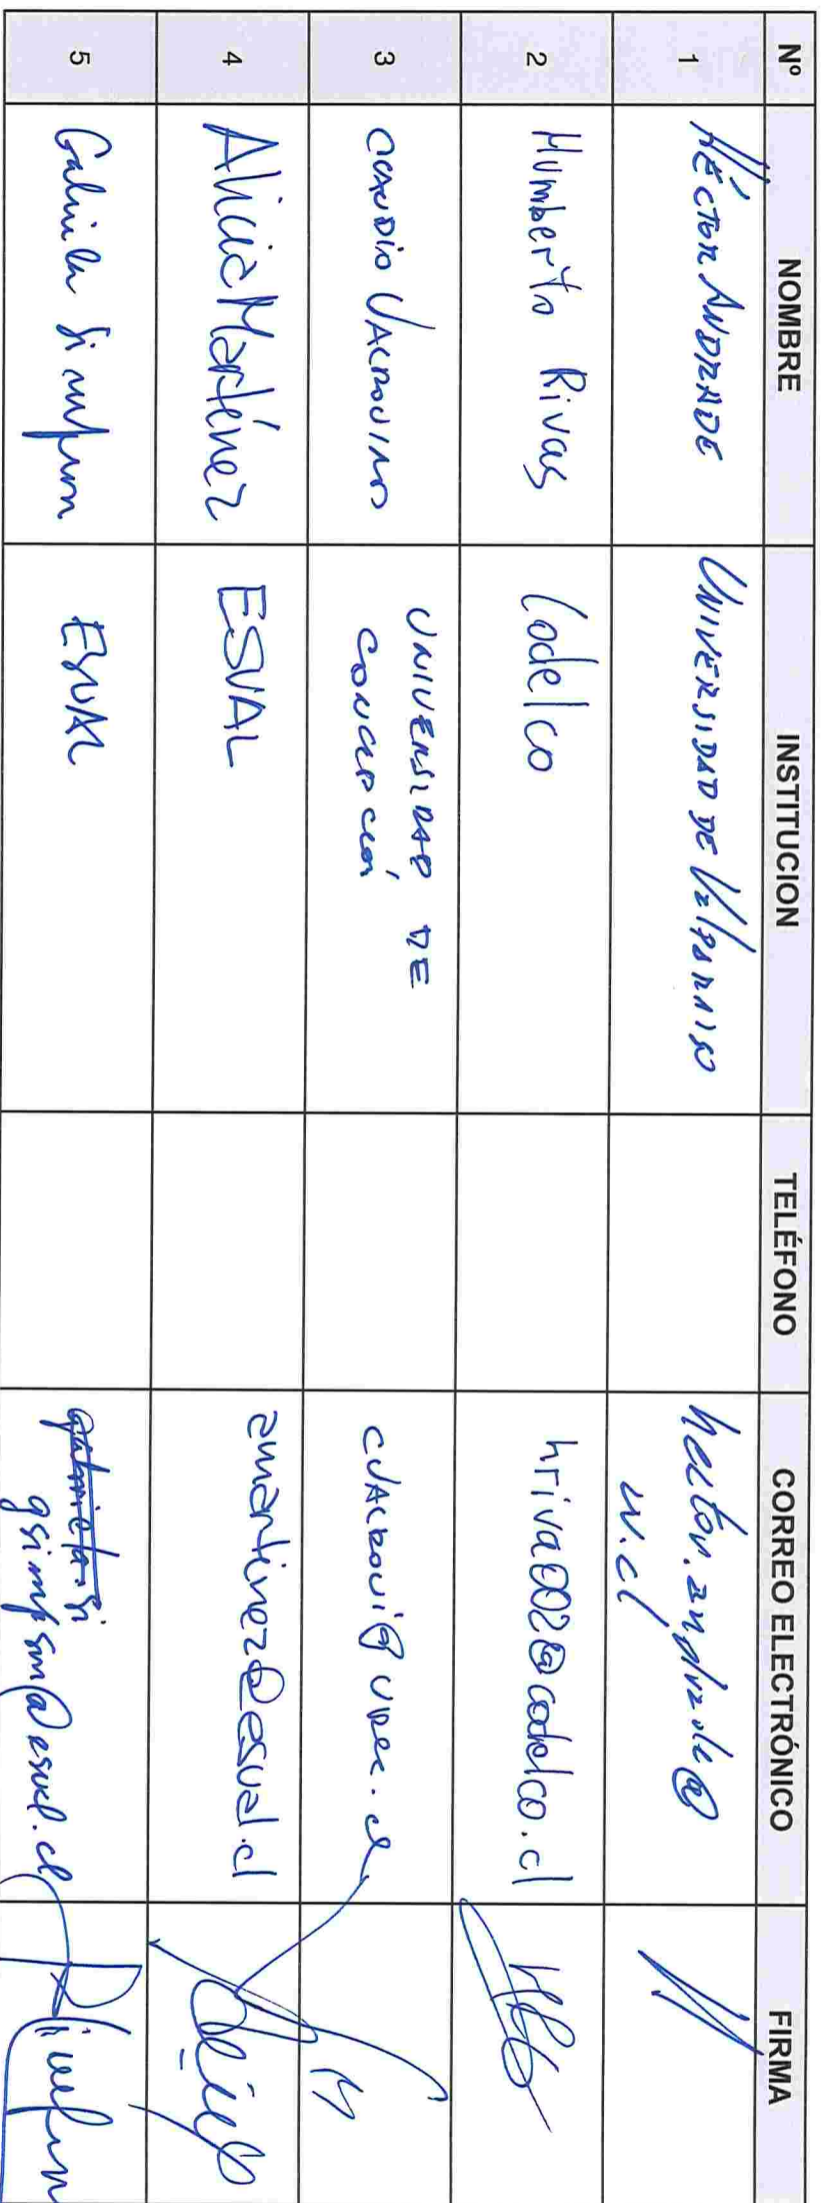 Nº NOMBRE INSTITUCION TELÉFONO CORREO ELECTRÓNICO FIRMA
1 HÉCTOR ANDRADE UNIVERSIDAD DE VALPARAISO hector.andrade@
uv.cl
2 Humberto Rivas Codelco hriva002@codelco.cl
3 CLAUDIO VALDOVINOS UNIVERSIDAD DE
CONCEPCIÓN cvaldovi@udec.cl
4 Alicia Martínez ESVAL amartinez@esval.cl
5 Gabriela Simpson ESVAL gabriela.si
gsimpson@esval.cl